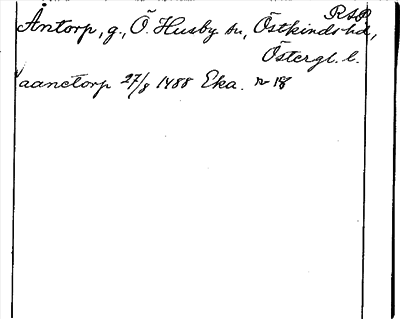 RSP
Åntorp, g., Ö. Husby sn, Östkinds hd,
Östergl. l.
aanetorp 27/8 1488 Eka. n 18